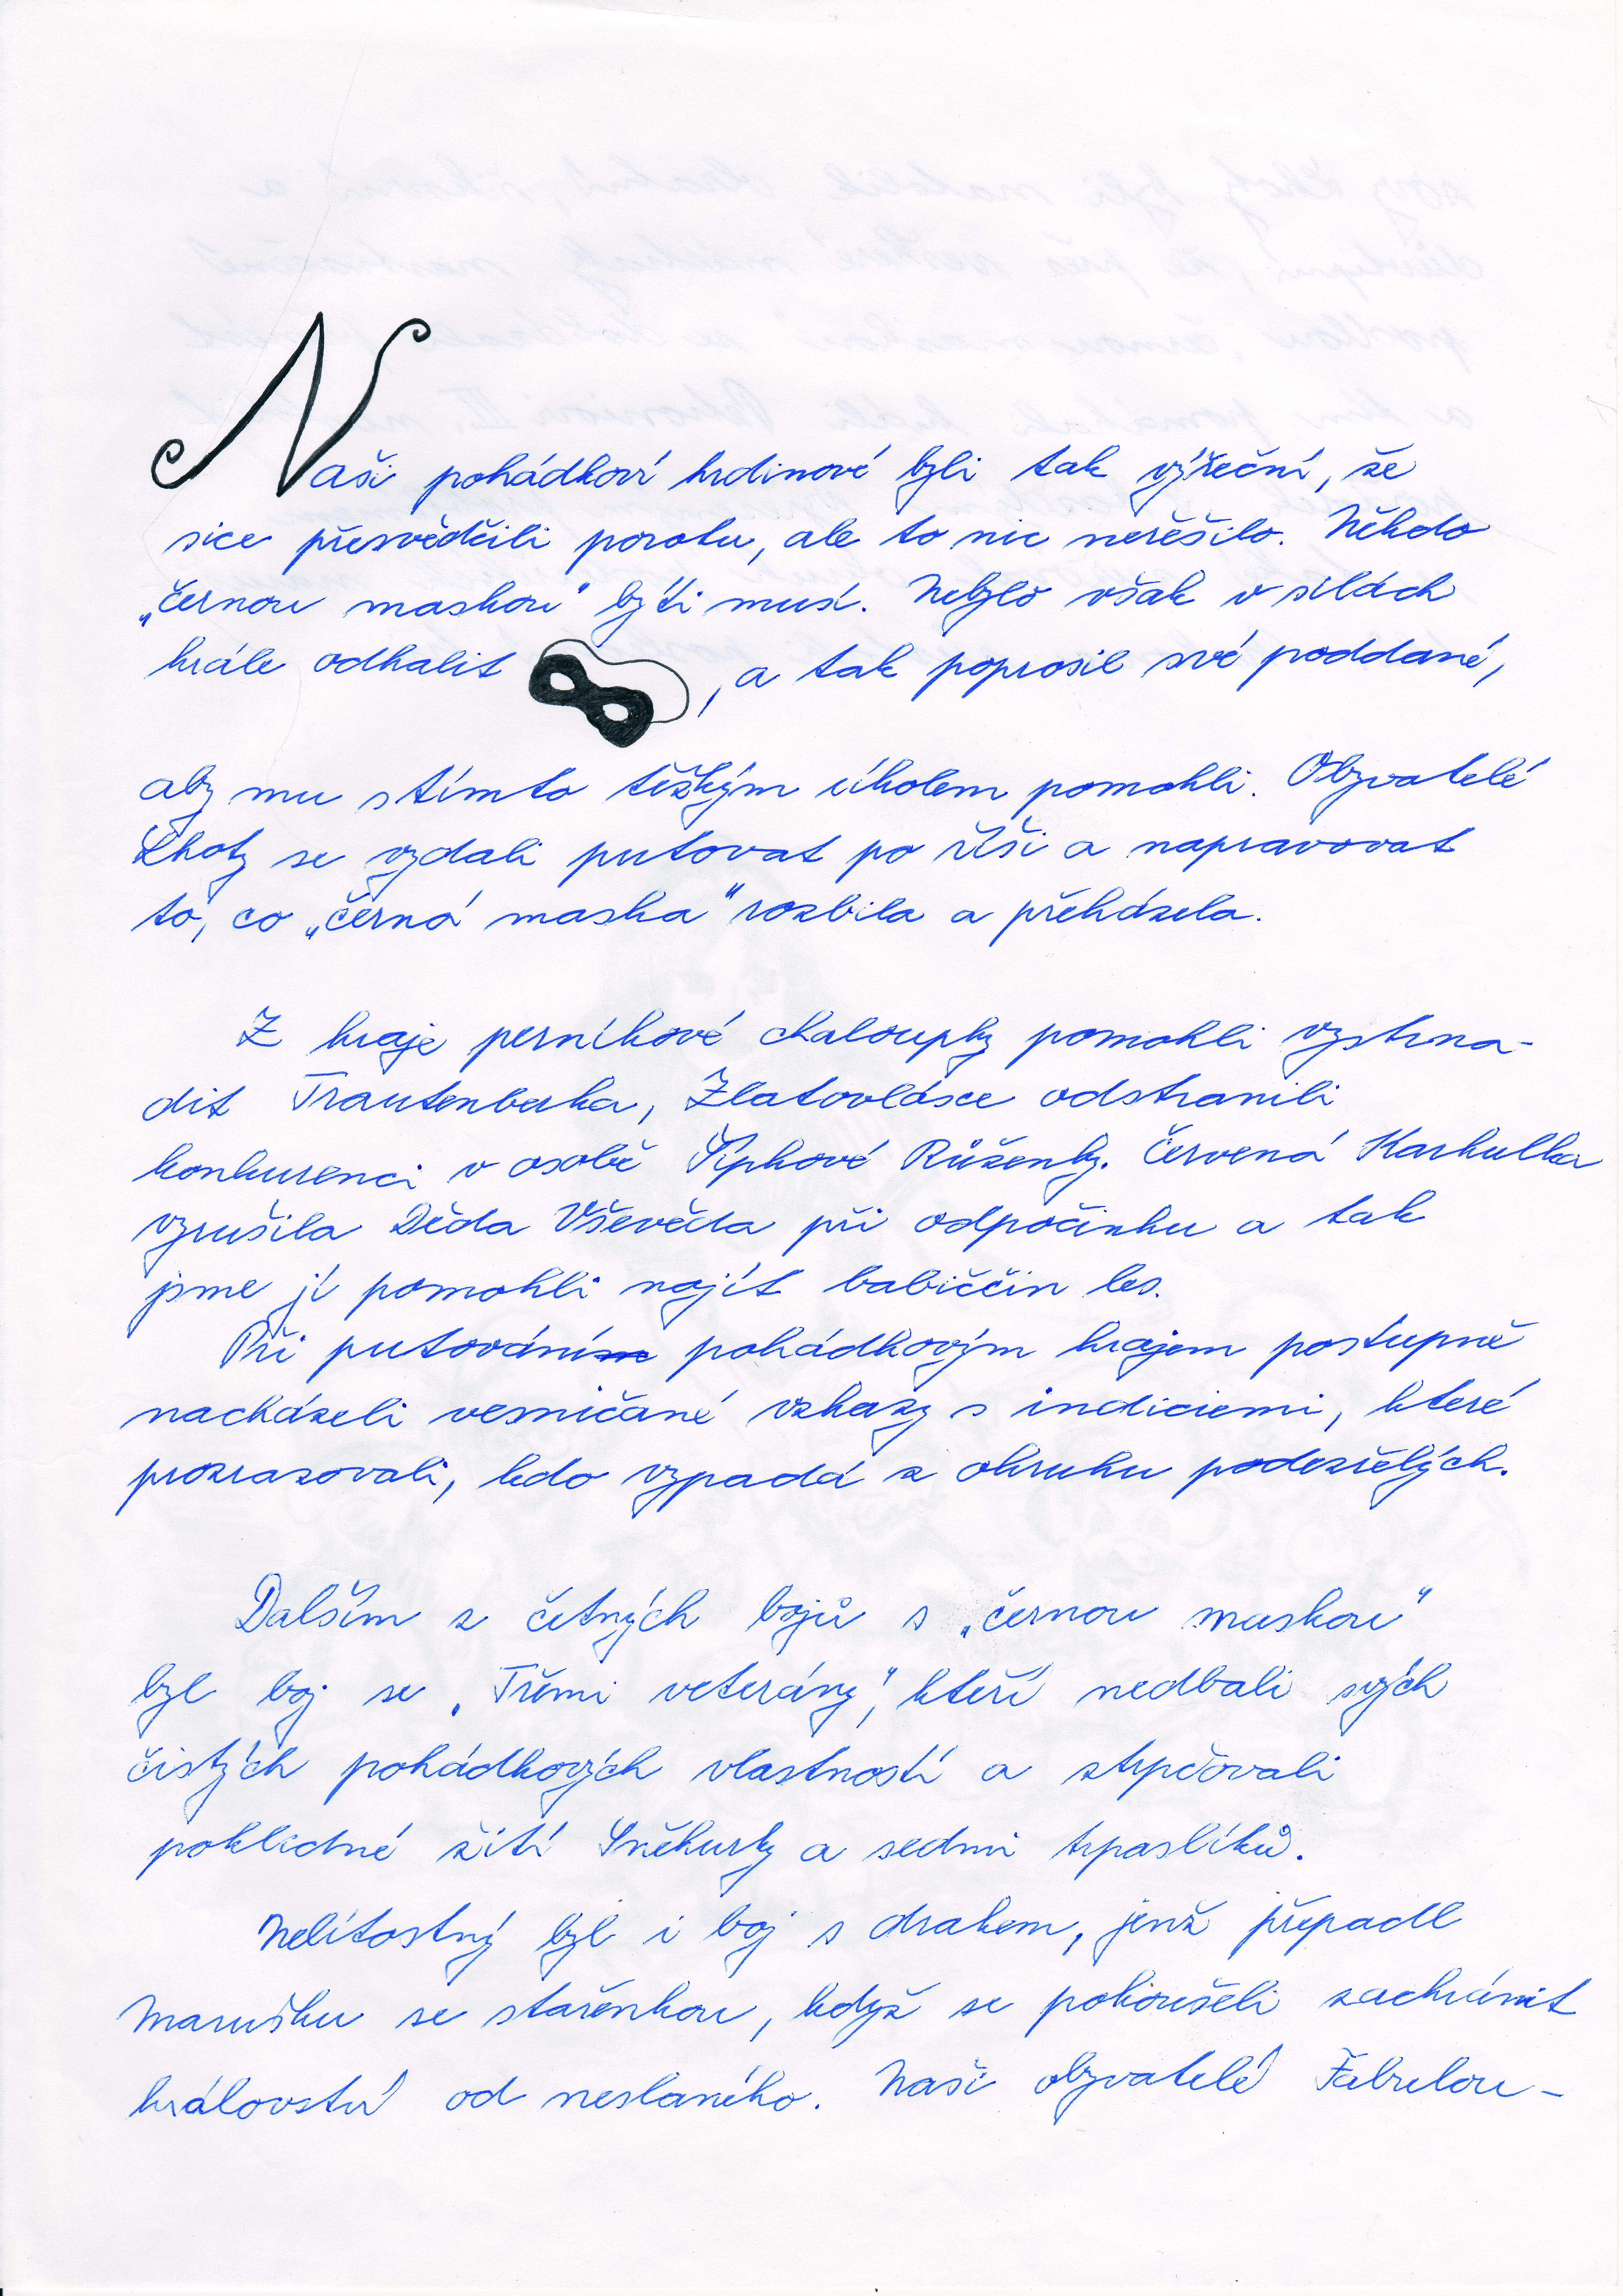 Naši pohádkoví hrdinové byli tak výřeční, že
sice přesvědčili porotu, ale to nic neřešilo. Někdo
„černou maskou" býti musí. Nebylo však v silách
krále odhalit , a tak poprosil své poddané,
aby mu s tímto těžkým úkolem pomohli. Obyvatelé
Lhoty se vydali putovat po říši a napravovat
to, co „černá maska" rozbila a přeházela.
Z kraje perníkové chaloupky pomohli vystrna-
dit Trautenberka, Zlatovlásce odstranili
konkurenci v osobě Šípkové Růženky. Červená Karkulka
vzrušila Děda Vševěda při odpočinku a tak
jsme jí pomohli najít babiččin les.
Při putování pohádkovým krajem postupně
nacházeli vesničané vzkazy s indiciemi, které
prozrazovali, kdo vypadá z okruhu podezřelých.
Dalším z četných bojů s „černou maskou"
byl boj se „Třemi veterány", kteří nedbali svých
čistých pohádkových vlastností a ztrpčovali
poklidné žití Sněhurky a sedmi trpaslíků.
Nelítostný byl i boj s drakem, jenž přepadl
Marušku se stařenkou, když se pokoušeli zachránit
království od neslaného. Naši obyvatelé Fabulou-